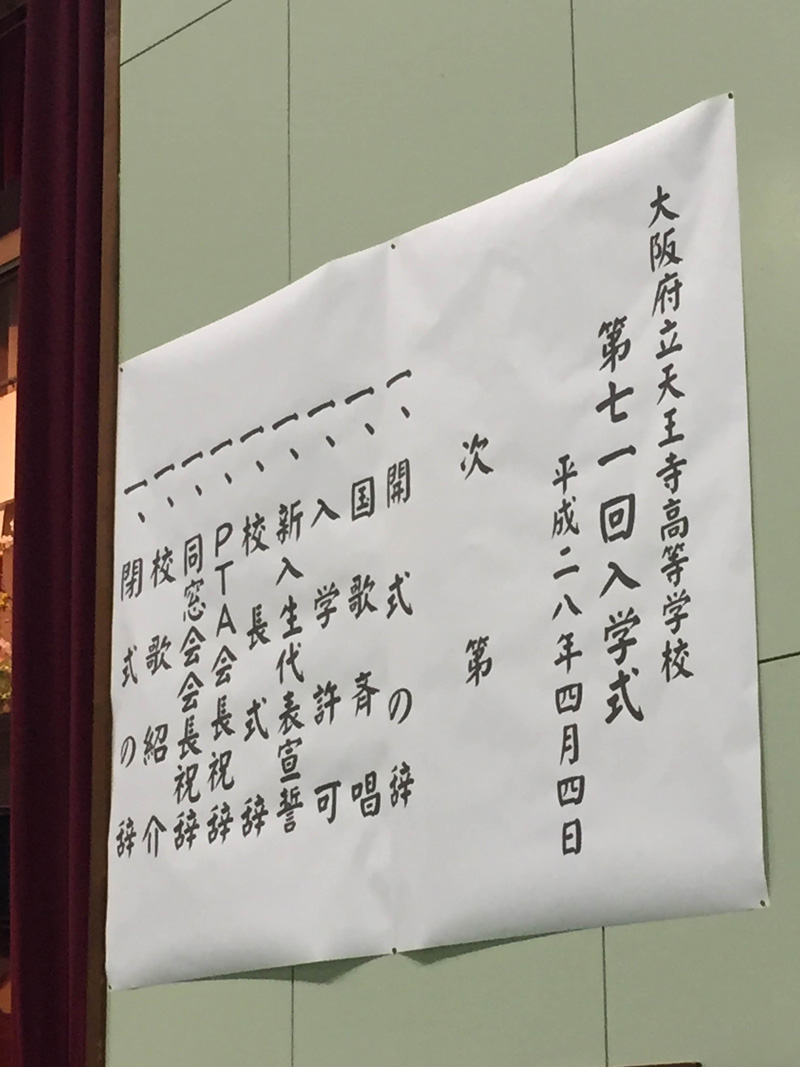 大阪府立天王寺高等学校
第七一回入学式
平成二八年四月四日
次第
一、開式の辞
一、国歌斉唱
一、入学許可
一、新入生代表宣誓
一、校長式辞
一、PTA会長祝辞
一、同窓会会長祝辞
一、校歌紹介
一、閉式の辞